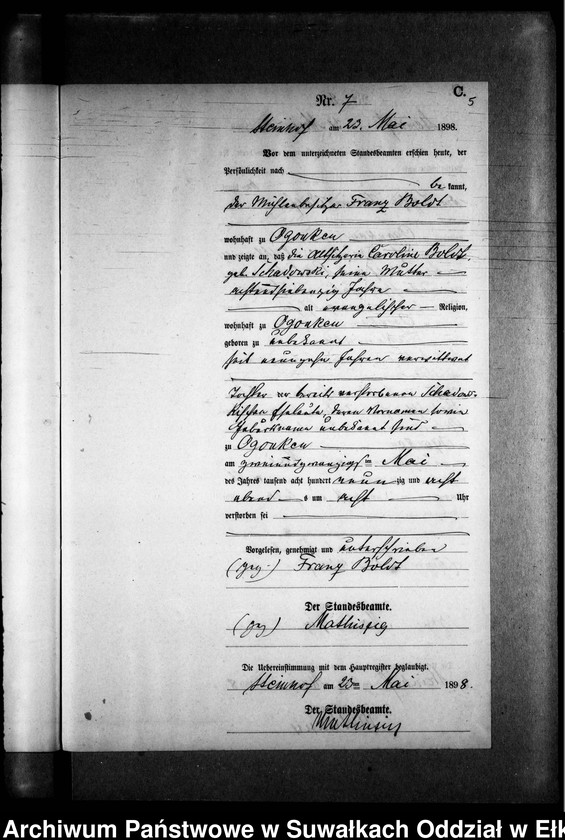 C.
5
Nr. 7
Steinhof am 23. Mai 1898.
Vor dem unterzeichneten Standesbeamten erschien heute, der
Persönlichkeit nach
be kannt,
der Mühlenbesitzer Franz Boldt
wohnhaft zu Ogonken
und zeigte an, daß die Altsitzerin Caroline Boldt,
geb. Schadowski, seine Mutter
achtundsiebenzig Jahre
alt evangelischer Religion,
wohnhaft zu Ogonken
geboren zu unbekannt
seit neunzehn Jahren verwittwet
Tochter der bereits verstorbenen Schadow-
skischen Eheleute, deren Vornamen sowie
Geburtsname unbekannt sind
zu Ogonken
am zweiundzwanzigsten Mai
des Jahres tausend acht hundert neun zig und acht
abend s um acht Uhr
verstorben sei
Vorgelesen, genehmigt und unterschrieben
(gez.) Franz Boldt
Der Standesbeamte.
(gez)
Die Uebereinstimmung mit dem Hauptregister beglaubigt.
Steinhof am 23ten Mai 1898.
Der Standesbeamte.
Archiwum Państwowe w Suwałkach Oddział w Ełk